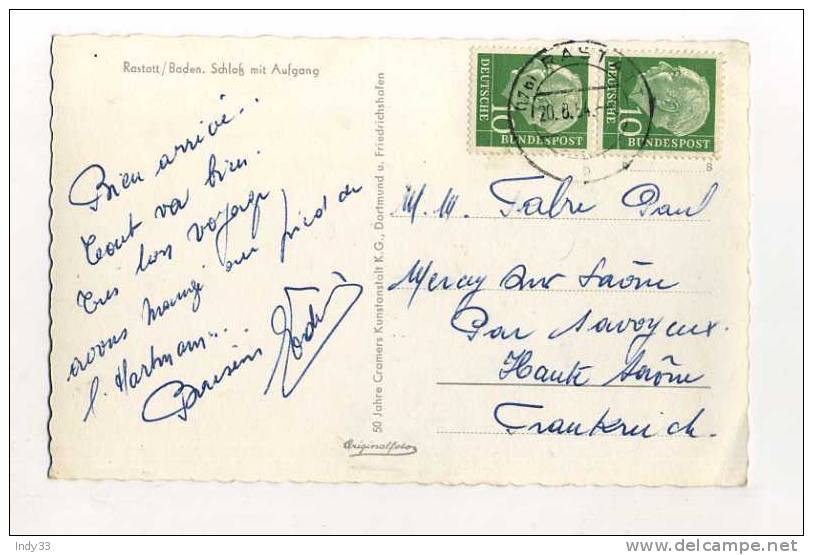 Rastatt/Baden. Schloß mit Aufgang
Bien arrivé..
tout va bien.
très bon voyage
avons mangé au pied de
l'Hartmann..
50 Jahre Cramers Kunstanstalt K.G., Dortmund u. Friedrichshafen
Originalfoto
DEUTSCHE
10
BUNDESPOST
DEUTSCHE
10
BUNDESPOST
(17a) RASTA
20.8.54.-
b
8
M. M. Fabre Paul
Mercey sur Saône
Par Savoyeux.
Haute Saône
Frankreich.
Indy33
www.delcampe.net